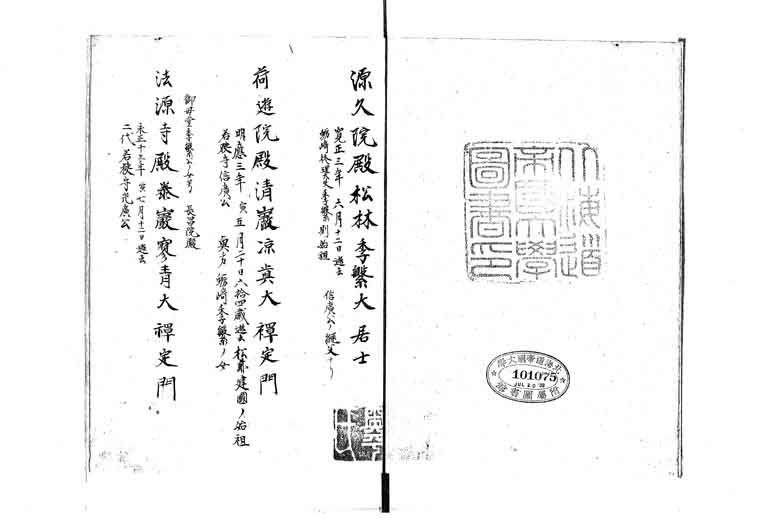 北海道
帝國大學
圖書印
北海道帝國大學
101075
JUL 20
附屬圖書館
源久院殿松林季繁大居士
寛正三年 六月十二日逝去 信廣公ノ継父ナリ
蠣崎修理大夫季繁別始祖
荷遊院殿清巖凉真大禅定門
明應三年 寅五月二十日六拾四歳逝去 松前建國ノ始祖
若狭守信廣公 奥方蠣崎季繁ノ女
御母堂季繁公ノ女号 長昌院殿
法源寺殿泰巖寥青大禅定門
永正十三年 寅七月十二日逝去
二代若狭守光廣公